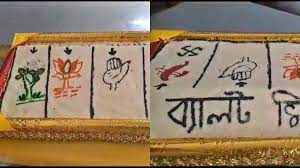 ব্যালট